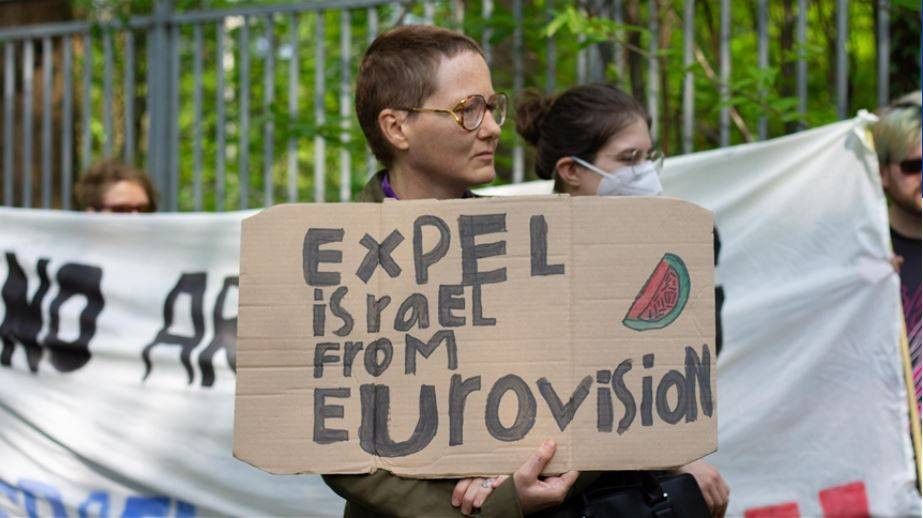 EXPEL
israEL
FROM
EUrovisioN
NO AR